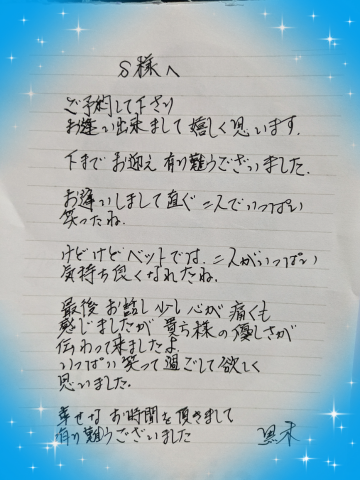 S様へ
ご予約して下さり
お逢い出来まして嬉しく思います.
下までお迎え有り難うございました.
お逢いしまして直ぐ二人でいっぱい
笑ったね.
けどけどベットでは、二人がいっぱい
気持ち良くなれたね.
最後お話し少し心が痛くも
感じましたが貴方様の優しさが
伝わって来ましたよ
いっぱい笑って過ごして欲しく
思いました.
幸せなお時間を頂きまして
有り難うございました
黒木